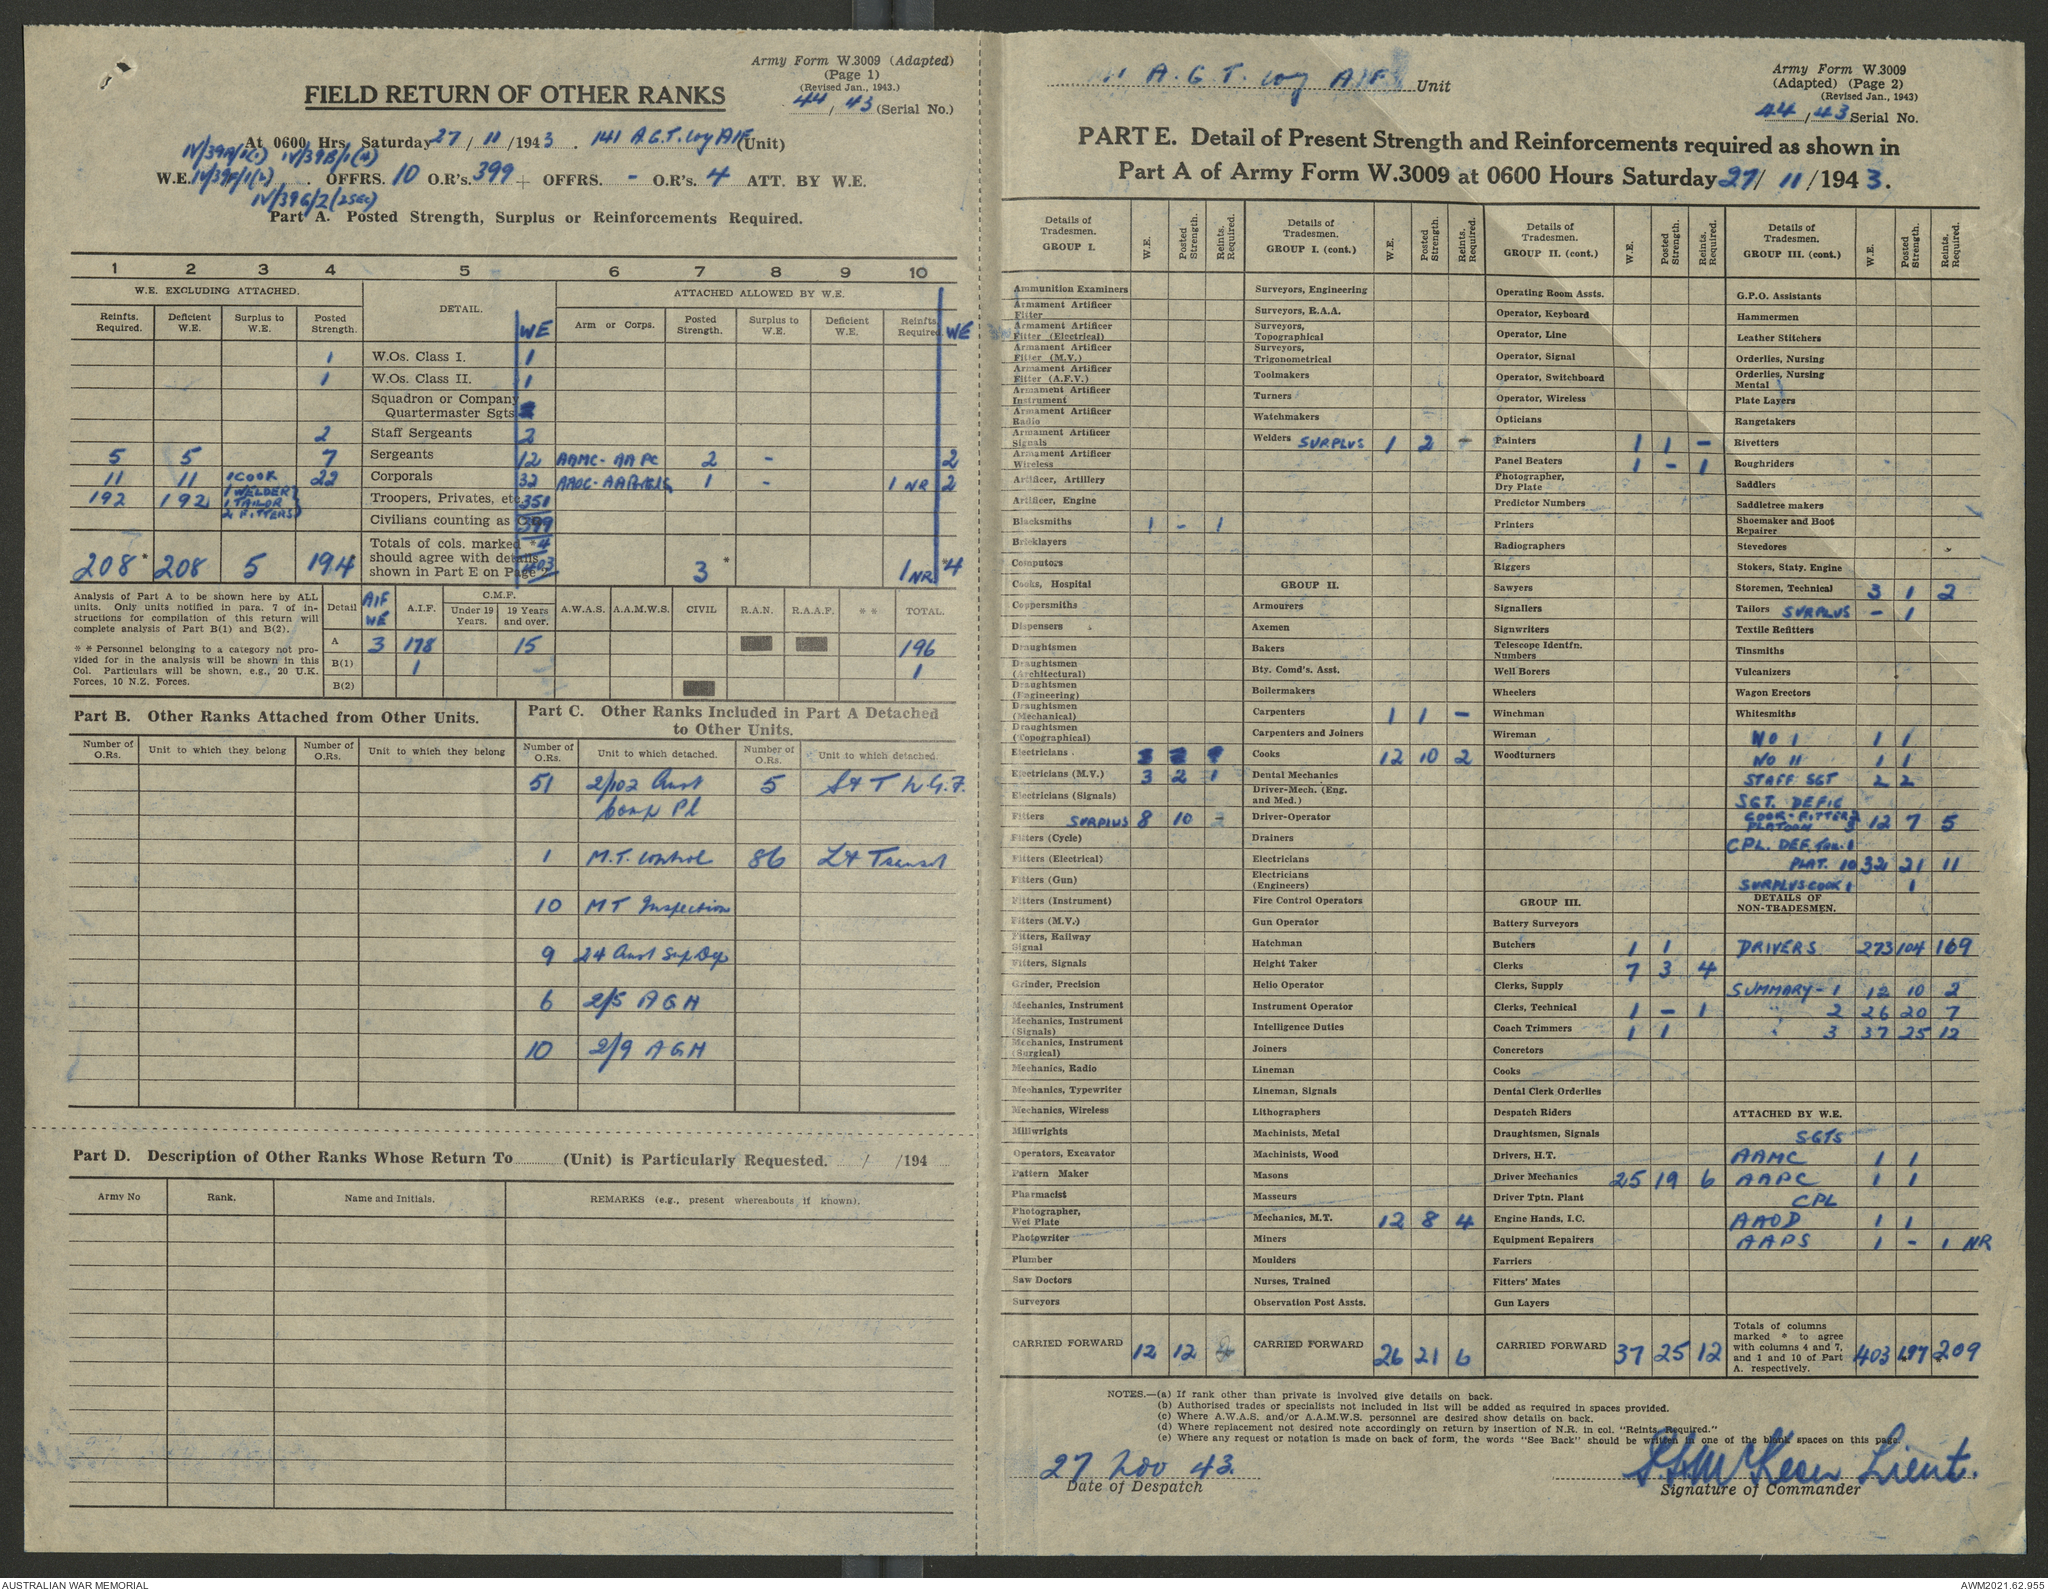 Army Form W.3009 (Adapted)
(Page 1)
(Revised Jan., 1943.)
44/43 (Serial No.)
FIELD RETURN OF OTHER RANKS
At 0600 Hrs. Saturday 27/11/1943. 141 A.G.T. Coy AIF (Unit)
IV/39A/1(1) IV/39B/1(4)
W.E. IV/39F/1(2) OFFRS. 10 O.R's. 399 + OFFRS. - O.R's. 4 ATT. BY W.E.
IV/39G/2 (2 SEC)
Part A. Posted Strength, Surplus or Reinforcements Required.
1 2 3 4 5 6 7 8 9 10
W.E. EXCLUDING ATTACHED. DETAIL. ATTACHED ALLOWED BY W.E.
Reinfts. Required. Deficient W.E. Surplus to W.E. Posted Strength. WE Arm or Corps. Posted Strength. Surplus to W.E. Deficient W.E. Reinfts. Required. WE
1 W.Os. Class I. 1
1 W.Os. Class II. 1
Squadron or Company
Quartermaster Sgts.
2 Staff Sergeants 2
5 5 7 Sergeants 12 AAMC - AAPC 2 - 2
11 11 1 COOK 22 Corporals 32 1 - 1 NR 2
192 192 1 WELDER 1 TAILOR 2 FITTERS Troopers, Privates, etc. 351
Civilians counting as 399
Totals of cols. marked * 4
should agree with details
shown in Part E on Page 403
208* 208 5 194 3* 1 NR *4
Analysis of Part A to be shown here by ALL
units. Only units notified in para. 7 of in-
structions for compilation of this return will
complete analysis of Part B(1) and B(2).
* * Personnel belonging to a category not pro-
vided for in the analysis will be shown in this
Col. Particulars will be shown, e.g., 20 U.K.
Forces, 10 N.Z. Forces.
Detail AIF WE A.I.F. C.M.F. Under 19 Years. 19 Years and over. A.W.A.S. A.A.M.W.S. CIVIL R.A.N. R.A.A.F. * * TOTAL.
A 3 178 15 196
B(1) 1 1
B(2)
Part B. Other Ranks Attached from Other Units.
Number of O.Rs. Unit to which they belong Number of O.Rs. Unit to which they belong
Part C. Other Ranks Included in Part A Detached
to Other Units.
Number of O.Rs. Unit to which detached. Number of O.Rs. Unit to which detached.
51 2/102 Aust 5 S & T N.G.F.
Comp Pl
1 M.T. Control 86 Lt Transit
10 MT Inspection
9 24 Aust Sup Dep
6 2/5 AGH
10 2/9 AGH
Part D. Description of Other Ranks Whose Return To (Unit) is Particularly Requested. / /194
Army No Rank. Name and Initials. REMARKS (e.g., present whereabouts if known).
A.G.T. Coy AIF Unit
Army Form W.3009
(Adapted) (Page 2)
(Revised Jan., 1943)
44/43 Serial No.
PART E. Detail of Present Strength and Reinforcements required as shown in
Part A of Army Form W.3009 at 0600 Hours Saturday 27/11/1943.
Details of Tradesmen. GROUP I. W.E. Posted Strength. Reints. Required.
Ammunition Examiners
Armament Artificer Fitter
Armament Artificer Fitter (Electrical)
Armament Artificer Fitter (M.V.)
Armament Artificer Fitter (A.F.V.)
Armament Artificer Instrument
Armament Artificer Radio
Armament Artificer Signals
Armament Artificer Wireless
Artificer, Artillery
Artificer, Engine
Blacksmiths 1 - 1
Bricklayers
Computors
Cooks, Hospital
Coppersmiths
Dispensers
Draughtsmen
Draughtsmen (Architectural)
Draughtsmen (Engineering)
Draughtsmen (Mechanical)
Draughtsmen (Topographical)
Electricians
Electricians (M.V.) 3 2 1
Electricians (Signals)
Fitters SURPLUS 8 10 2
Fitters (Cycle)
Fitters (Electrical)
Fitters (Gun)
Fitters (Instrument)
Fitters (M.V.)
Fitters, Railway Signal
Fitters, Signals
Grinder, Precision
Mechanics, Instrument
Mechanics, Instrument (Signals)
Mechanics, Instrument (Surgical)
Mechanics, Radio
Mechanics, Typewriter
Mechanics, Wireless
Millwrights
Operators, Excavator
Pattern Maker
Pharmacist
Photographer, Wet Plate
Photowriter
Plumber
Saw Doctors
Surveyors
CARRIED FORWARD 12 12
Details of Tradesmen. GROUP I. (cont.) W.E. Posted Strength. Reints. Required.
Surveyors, Engineering
Surveyors, R.A.A.
Surveyors, Topographical
Surveyors, Trigonometrical
Toolmakers
Turners
Watchmakers
Welders SURPLUS 1 2 -
GROUP II.
Armourers
Axemen
Bakers
Bty. Comd's. Asst.
Boilermakers
Carpenters 1 1 -
Carpenters and Joiners
Cooks 12 10 2
Dental Mechanics
Driver-Mech. (Eng. and Med.)
Driver-Operator
Drainers
Electricians
Electricians (Engineers)
Fire Control Operators
Gun Operator
Hatchman
Height Taker
Helio Operator
Instrument Operator
Intelligence Duties
Joiners
Lineman
Lineman, Signals
Lithographers
Machinists, Metal
Machinists, Wood
Masons
Masseurs
Mechanics, M.T. 12 8 4
Miners
Moulders
Nurses, Trained
Observation Post Assts.
CARRIED FORWARD 26 21 6
Details of Tradesmen. GROUP II. (cont.) W.E. Posted Strength. Reints. Required.
Operating Room Assts.
Operator, Keyboard
Operator, Line
Operator, Signal
Operator, Switchboard
Operator, Wireless
Opticians
Painters 1 1 -
Panel Beaters 1 - 1
Photographer, Dry Plate
Predictor Numbers
Printers
Radiographers
Riggers
Sawyers
Signallers
Signwriters
Telescope Identfn. Numbers
Well Borers
Wheelers
Winchman
Wireman
Woodturners
GROUP III.
Battery Surveyors
Butchers 1 1
Clerks 7 3 4
Clerks, Supply
Clerks, Technical 1 - 1
Coach Trimmers 1 1
Concretors
Cooks
Dental Clerk Orderlies
Despatch Riders
Draughtsmen, Signals
Drivers, H.T.
Driver Mechanics 25 19 6
Driver Tptn. Plant
Engine Hands, I.C.
Equipment Repairers
Farriers
Fitters' Mates
Gun Layers
CARRIED FORWARD 37 25 12
Details of Tradesmen. GROUP III. (cont.) W.E. Posted Strength. Reints. Required.
G.P.O. Assistants
Hammermen
Leather Stitchers
Orderlies, Nursing
Orderlies, Nursing Mental
Plate Layers
Rangetakers
Rivetters
Roughriders
Saddlers
Saddletree makers
Shoemaker and Boot Repairer
Stevedores
Stokers, Staty. Engine
Storemen, Technical 3 1 2
Tailors SURPLUS - 1
Textile Refitters
Tinsmiths
Vulcanizers
Wagon Erectors
Whitesmiths
WO I 1 1
WO II 1 1
STAFF SGT 2 2
SGT. DEFIC
COOK - FITTER 2
PLATOON 3 12 7 5
CPL. DEF. 1
PLAT. 10 32 21 11
SURPLUS COOK 1 1
DETAILS OF NON-TRADESMEN.
DRIVERS 273 104 169
SUMMARY - 1 12 10 2
2 26 20 7
3 37 25 12
ATTACHED BY W.E.
SGTS
AAMC 1 1
AAPC 1 1
CPL
AAOD 1 1
AAPS 1 - 1 NR
Totals of columns
marked * to agree
with columns 4 and 7,
and 1 and 10 of Part
A. respectively. 403 197 209
NOTES.—(a) If rank other than private is involved give details on back.
(b) Authorised trades or specialists not included in list will be added as required in spaces provided.
(c) Where A.W.A.S. and/or A.A.M.W.S. personnel are desired show details on back.
(d) Where replacement not desired note accordingly on return by insertion of N.R. in col. "Reints. Required."
(e) Where any request or notation is made on back of form, the words "See Back" should be written in one of the blank spaces on this page.
27 Nov 43.
Date of Despatch
McKeon Lieut.
Signature of Commander
AUSTRALIAN WAR MEMORIAL
AWM2021.62.955